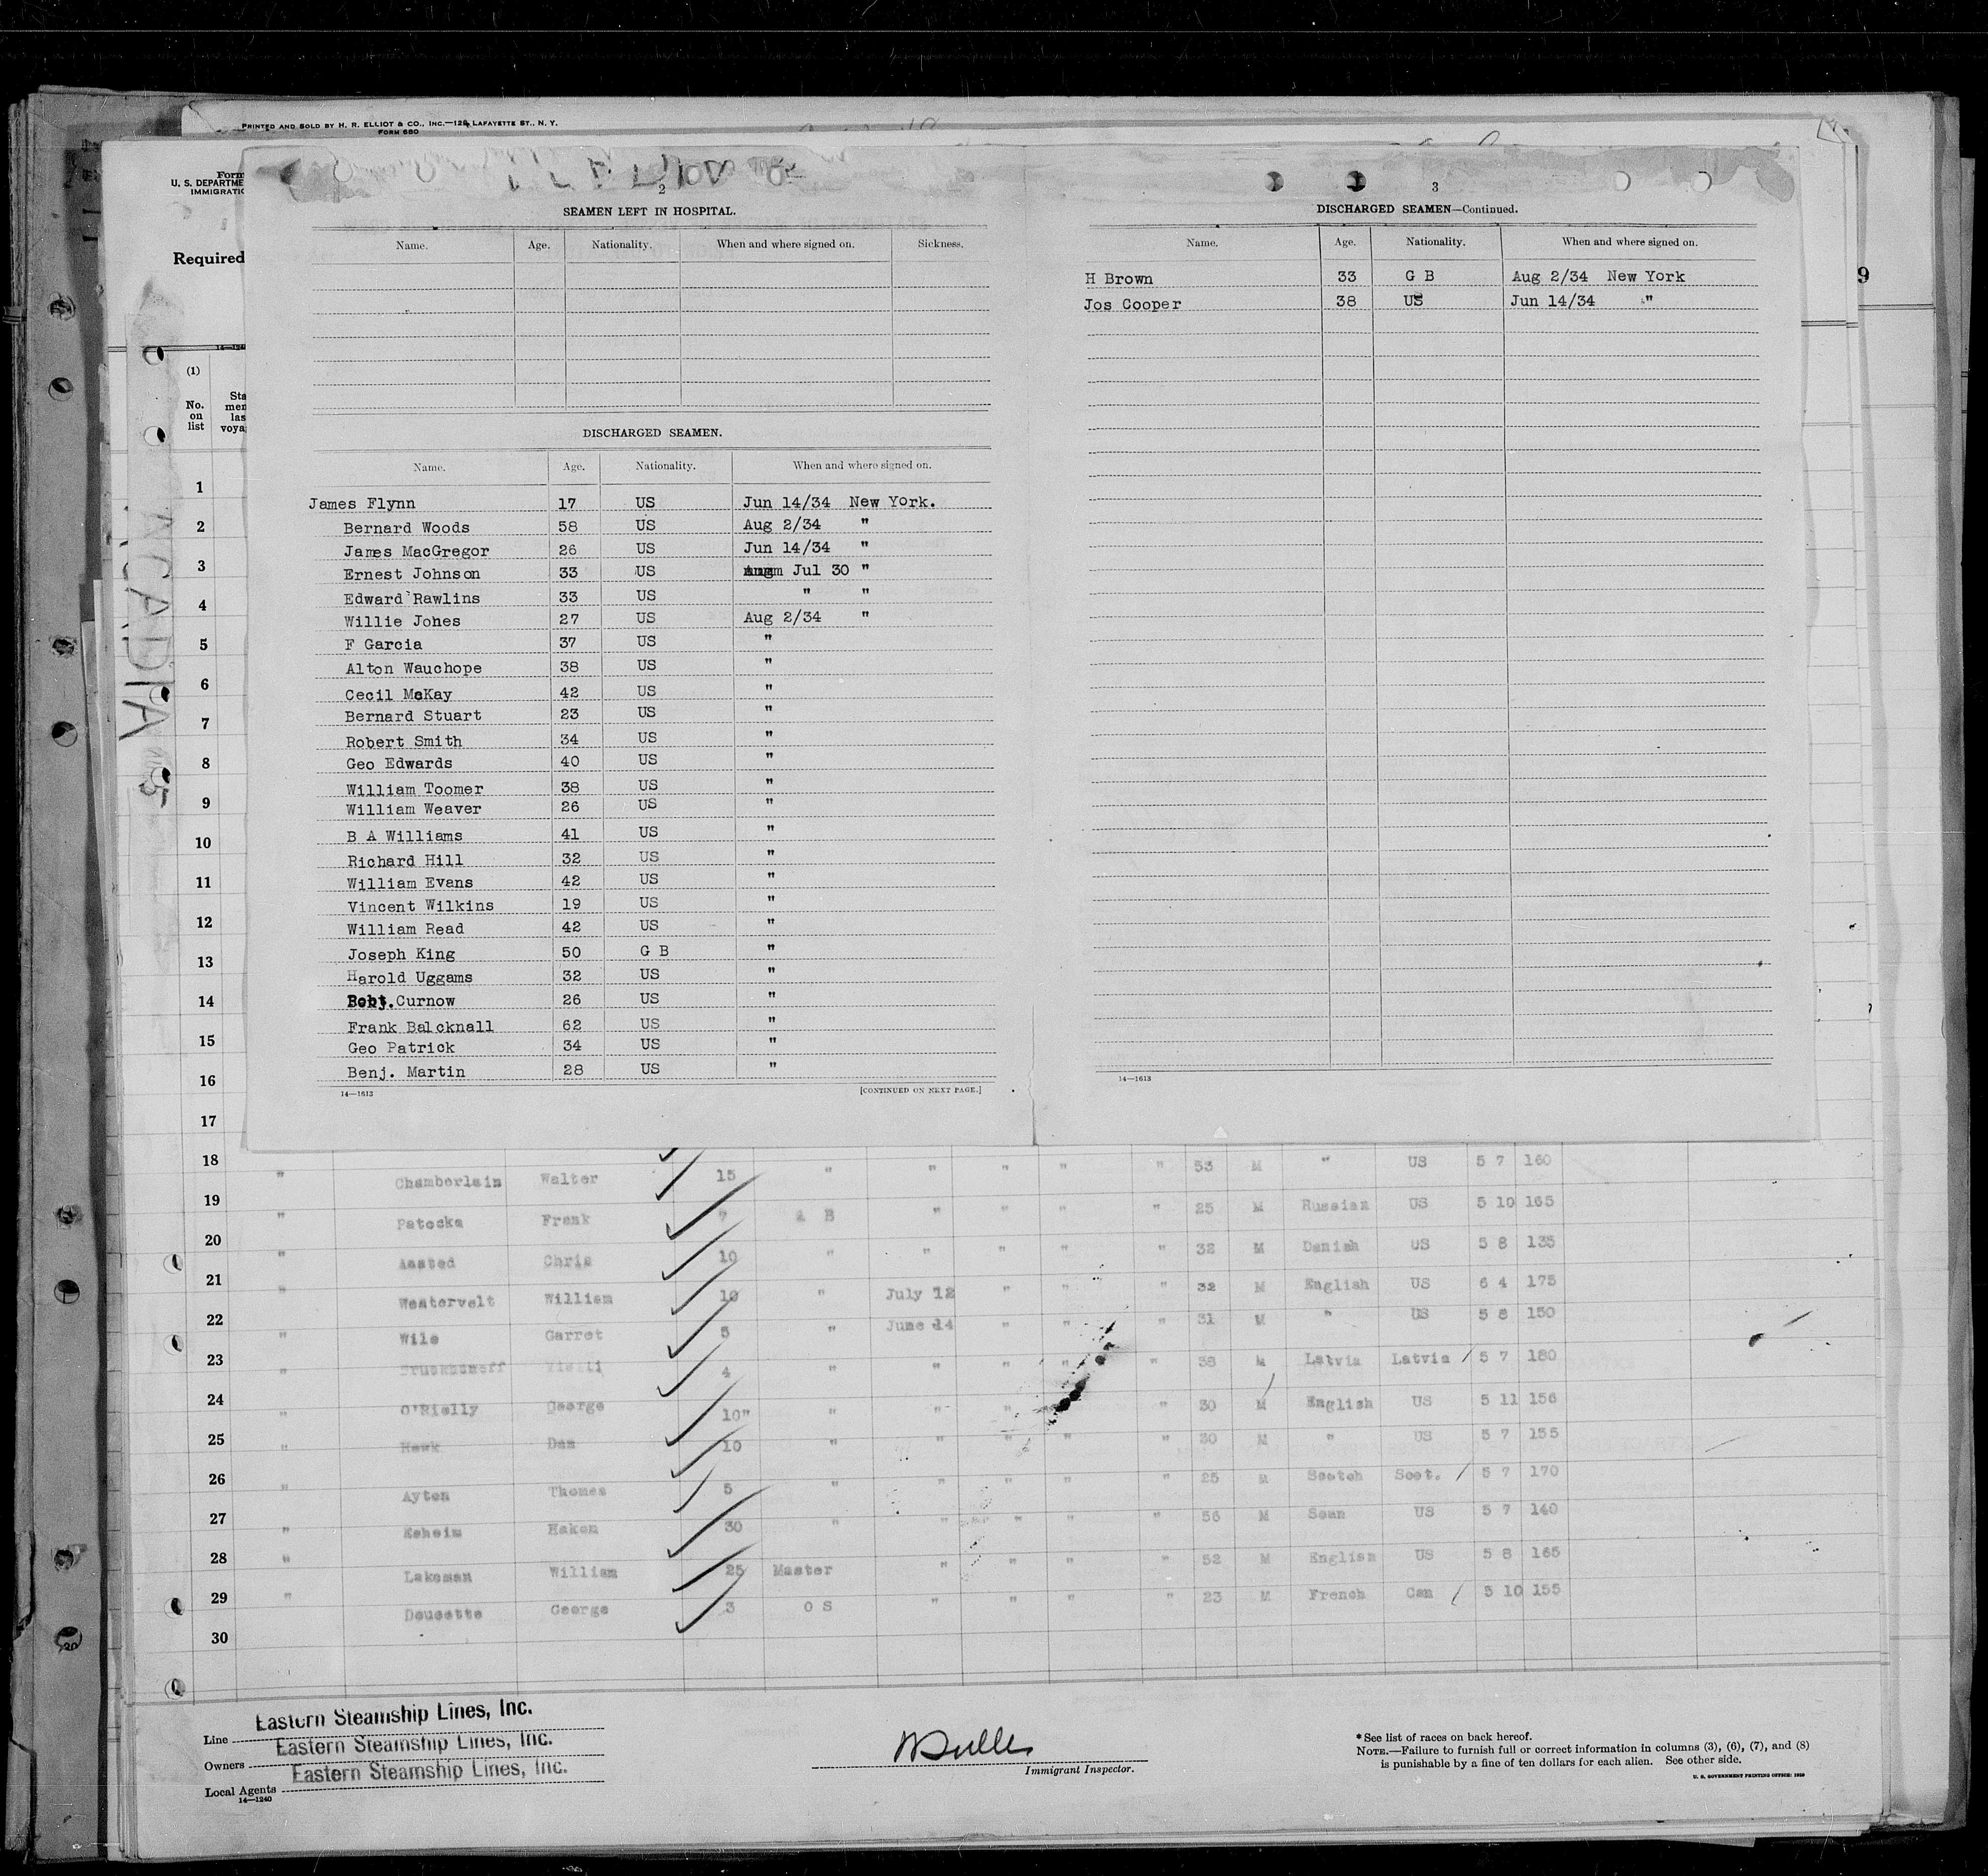 PRINTED AND SOLD BY H. R. ELLIOT & CO., INC.—129 LAFAYETTE ST., N. Y.
FORM 680
Form
U. S. DEPARTME
IMMIGRATIO
Required
9
14—124
(1)
No. on list
Sta men las voya
2
SEAMEN LEFT IN HOSPITAL.
Name. Age. Nationality. When and where signed on. Sickness.
DISCHARGED SEAMEN.
Name. Age. Nationality. When and where signed on.
James Flynn 17 US Jun 14/34 New York.
Bernard Woods 58 US Aug 2/34 "
James MacGregor 26 US Jun 14/34 "
Ernest Johnson 33 US Jul 30 "
Edward Rawlins 33 US " "
Willie Johes 27 US Aug 2/34 "
F Garcia 37 US "
Alton Wauchope 38 US "
Cecil McKay 42 US "
Bernard Stuart 23 US "
Robert Smith 34 US "
Geo Edwards 40 US "
William Toomer 38 US "
William Weaver 26 US "
B A Williams 41 US "
Richard Hill 32 US "
William Evans 42 US "
Vincent Wilkins 19 US "
William Read 42 US "
Joseph King 50 G B "
Harold Uggams 32 US "
Curnow 26 US "
Frank Balcknall 62 US "
Geo Patrick 34 US "
Benj. Martin 28 US "
14—1613 [CONTINUED ON NEXT PAGE.]
3
DISCHARGED SEAMEN—Continued.
Name. Age. Nationality. When and where signed on.
H Brown 33 G B Aug 2/34 New York
Jos Cooper 38 US Jun 14/34 "
14—1613
ACADIA
1
2
3
4
5
6
7
8
9
10
11
12
13
14
15
16
17
18 " Chamberlain Walter 15 " " " " " 53 M " US 5 7 160
19 " Patocka Frank 7 A B " " " " 25 M Russian US 5 10 165
20 " Aasted Chris 10 " " " " " 32 M Danish US 5 8 135
21 " Westervelt William 10 " July 12 " " " 32 M English US 6 4 175
22 " Wile Garret 5 " June 14 " " " 31 M " US 5 8 150
23 " 4 " " " " " 38 M Latvia Latvia / 5 7 180
24 " O'Rielly George 10" " " " " 30 M English US 5 11 156
25 " Hawk Dan 10 " " " " " 30 M " US 5 7 155
26 " Ayten Thomas 5 " " " " " 25 M Scotch Scot. / 5 7 170
27 " Esheim Hakon 30 " " " " " 56 M Scan US 5 7 140
28 " Lakeman William 25 Master " " " " 52 M English US 5 8 165
29 " Doucette George 3 O S " " " " 23 M French Can / 5 10 155
30
Line Eastern Steamship Lines, Inc.
Owners Eastern Steamship Lines, Inc.
Local Agents Eastern Steamship Lines, Inc.
14—1240
Immigrant Inspector.
* See list of races on back hereof.
NOTE.—Failure to furnish full or correct information in columns (3), (6), (7), and (8)
is punishable by a fine of ten dollars for each alien. See other side.
U. S. GOVERNMENT PRINTING OFFICE: